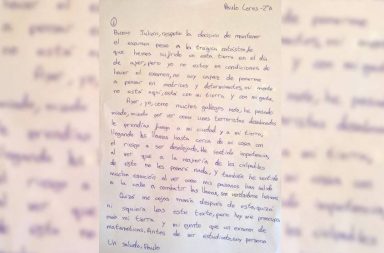 Paulo Ceres - 2ºA
①
Bueno Julian, respeto la decisión de mantener
el examen pese a la tragica catástrofe
que hemos sufrido en esta tierra en el día
de ayer, pero yo no estoy en condiciones de
hacer el examen, no soy capaz de ponerme
a pensar en matrices y determinantes, mi mente
no está aquí, está con mi tierra y con mi gente.
Ayer, yo, como muchos gallegos más, he pasado
miedo, miedo por ver como unos terroristas desalmados
le prendían fuego a mi ciudad y a mi tierra,
llegando las llamas hasta cerca de mi casa con
el riesgo a ser desalojado, he sentido impotencia,
al ver que a la mayoría de los culpables
de esto no les pasará nada, y también he sentido
mucha emoción al ver como mis paisanos han salido
a la calle a combatir las llamas, son verdaderos héroes.
Quizá me cojas manía después de esto, quizá
ni siquiera leas este texto, pero hoy me preocupa
más mi tierra y mi gente que un examen de
matemáticas. Antes de ser estudiante, soy persona.
Un saludo, Paulo